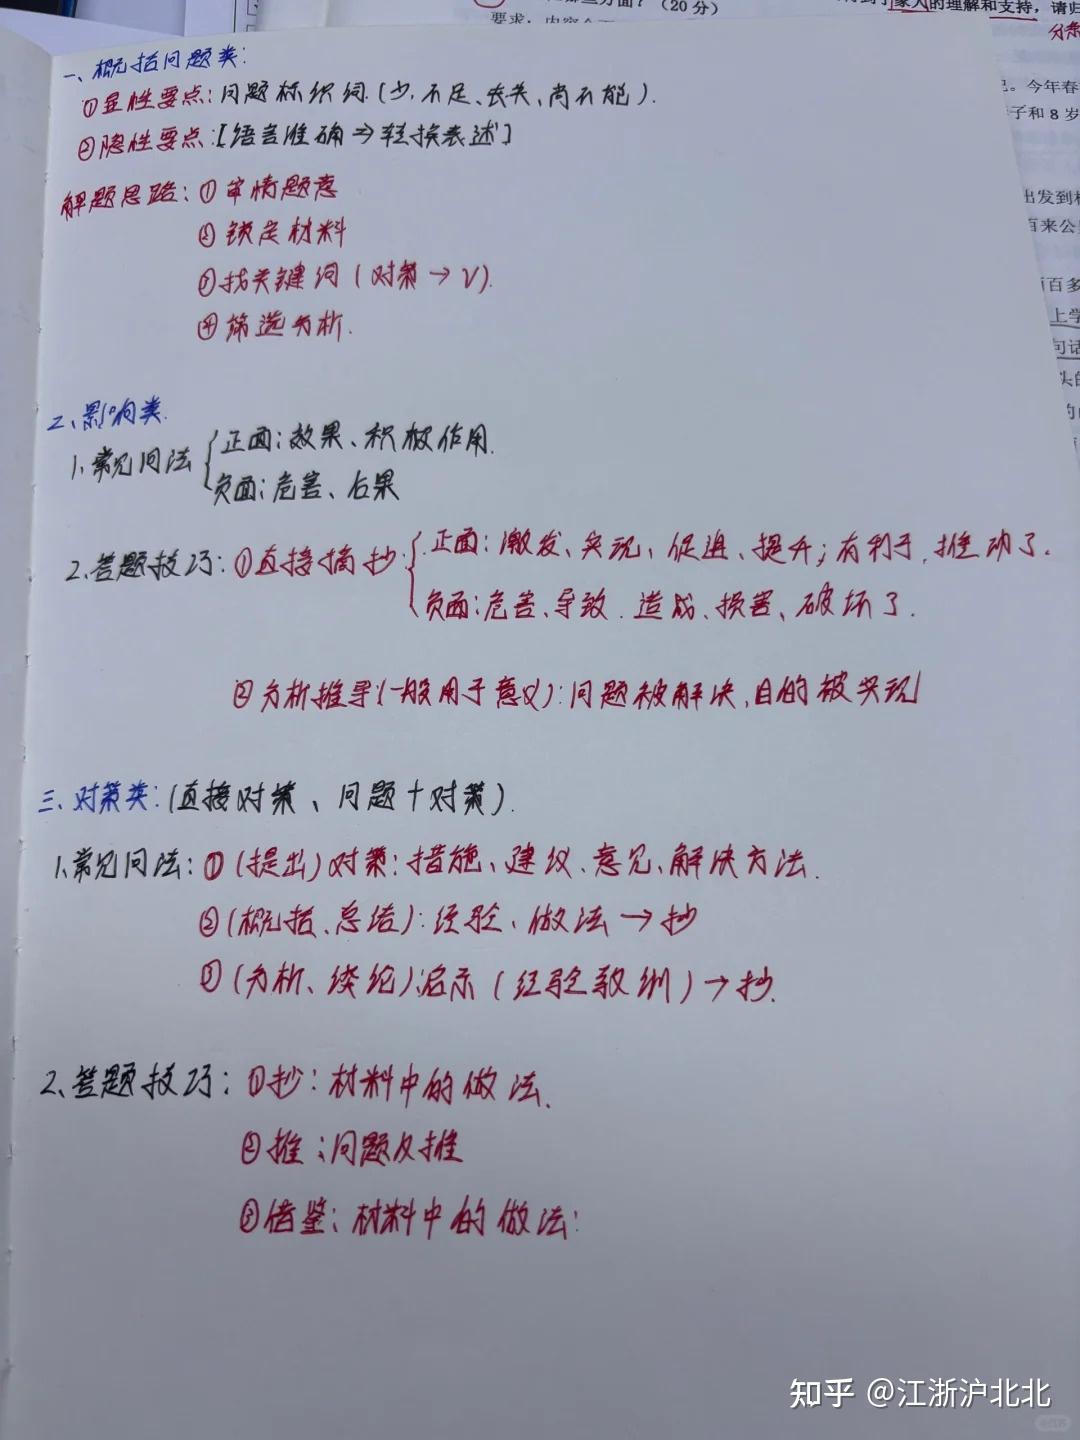 些方面？（20分）
家人的理解和支持，请归
要求：内容
分条
。今年春
子和8岁
出发到
百来公
百多
上学
句话
头的
一、概括问题类：
①显性要点：问题标识词（少、不足、丧失、尚不能）.
②隐性要点：[语言准确⇒转换表述]
解题思路：①审清题意
②锁定材料
③找关键词（对策→V）.
④筛选分析.
2、影响类.
1、常见问法
正面：效果、积极作用.
负面：危害、后果
2、答题技巧：①直接摘抄
正面：激发、实现、促进、提升；有利于，推动了.
负面：危害、导致．造成、损害、破坏了.
②分析推导（一般用于意义）：问题被解决、目的被实现
三、对策类：（直接对策、问题+对策）.
1、常见问法：①（提出）对策：措施、建议、意见、解决方法.
②（概括、总结）：经验、做法→抄
③（分析、续论）：启示（经验教训）→抄.
2、答题技巧：①抄：材料中的做法、
②推：问题反推
③借鉴：材料中的做法：
知乎 @江浙沪北北